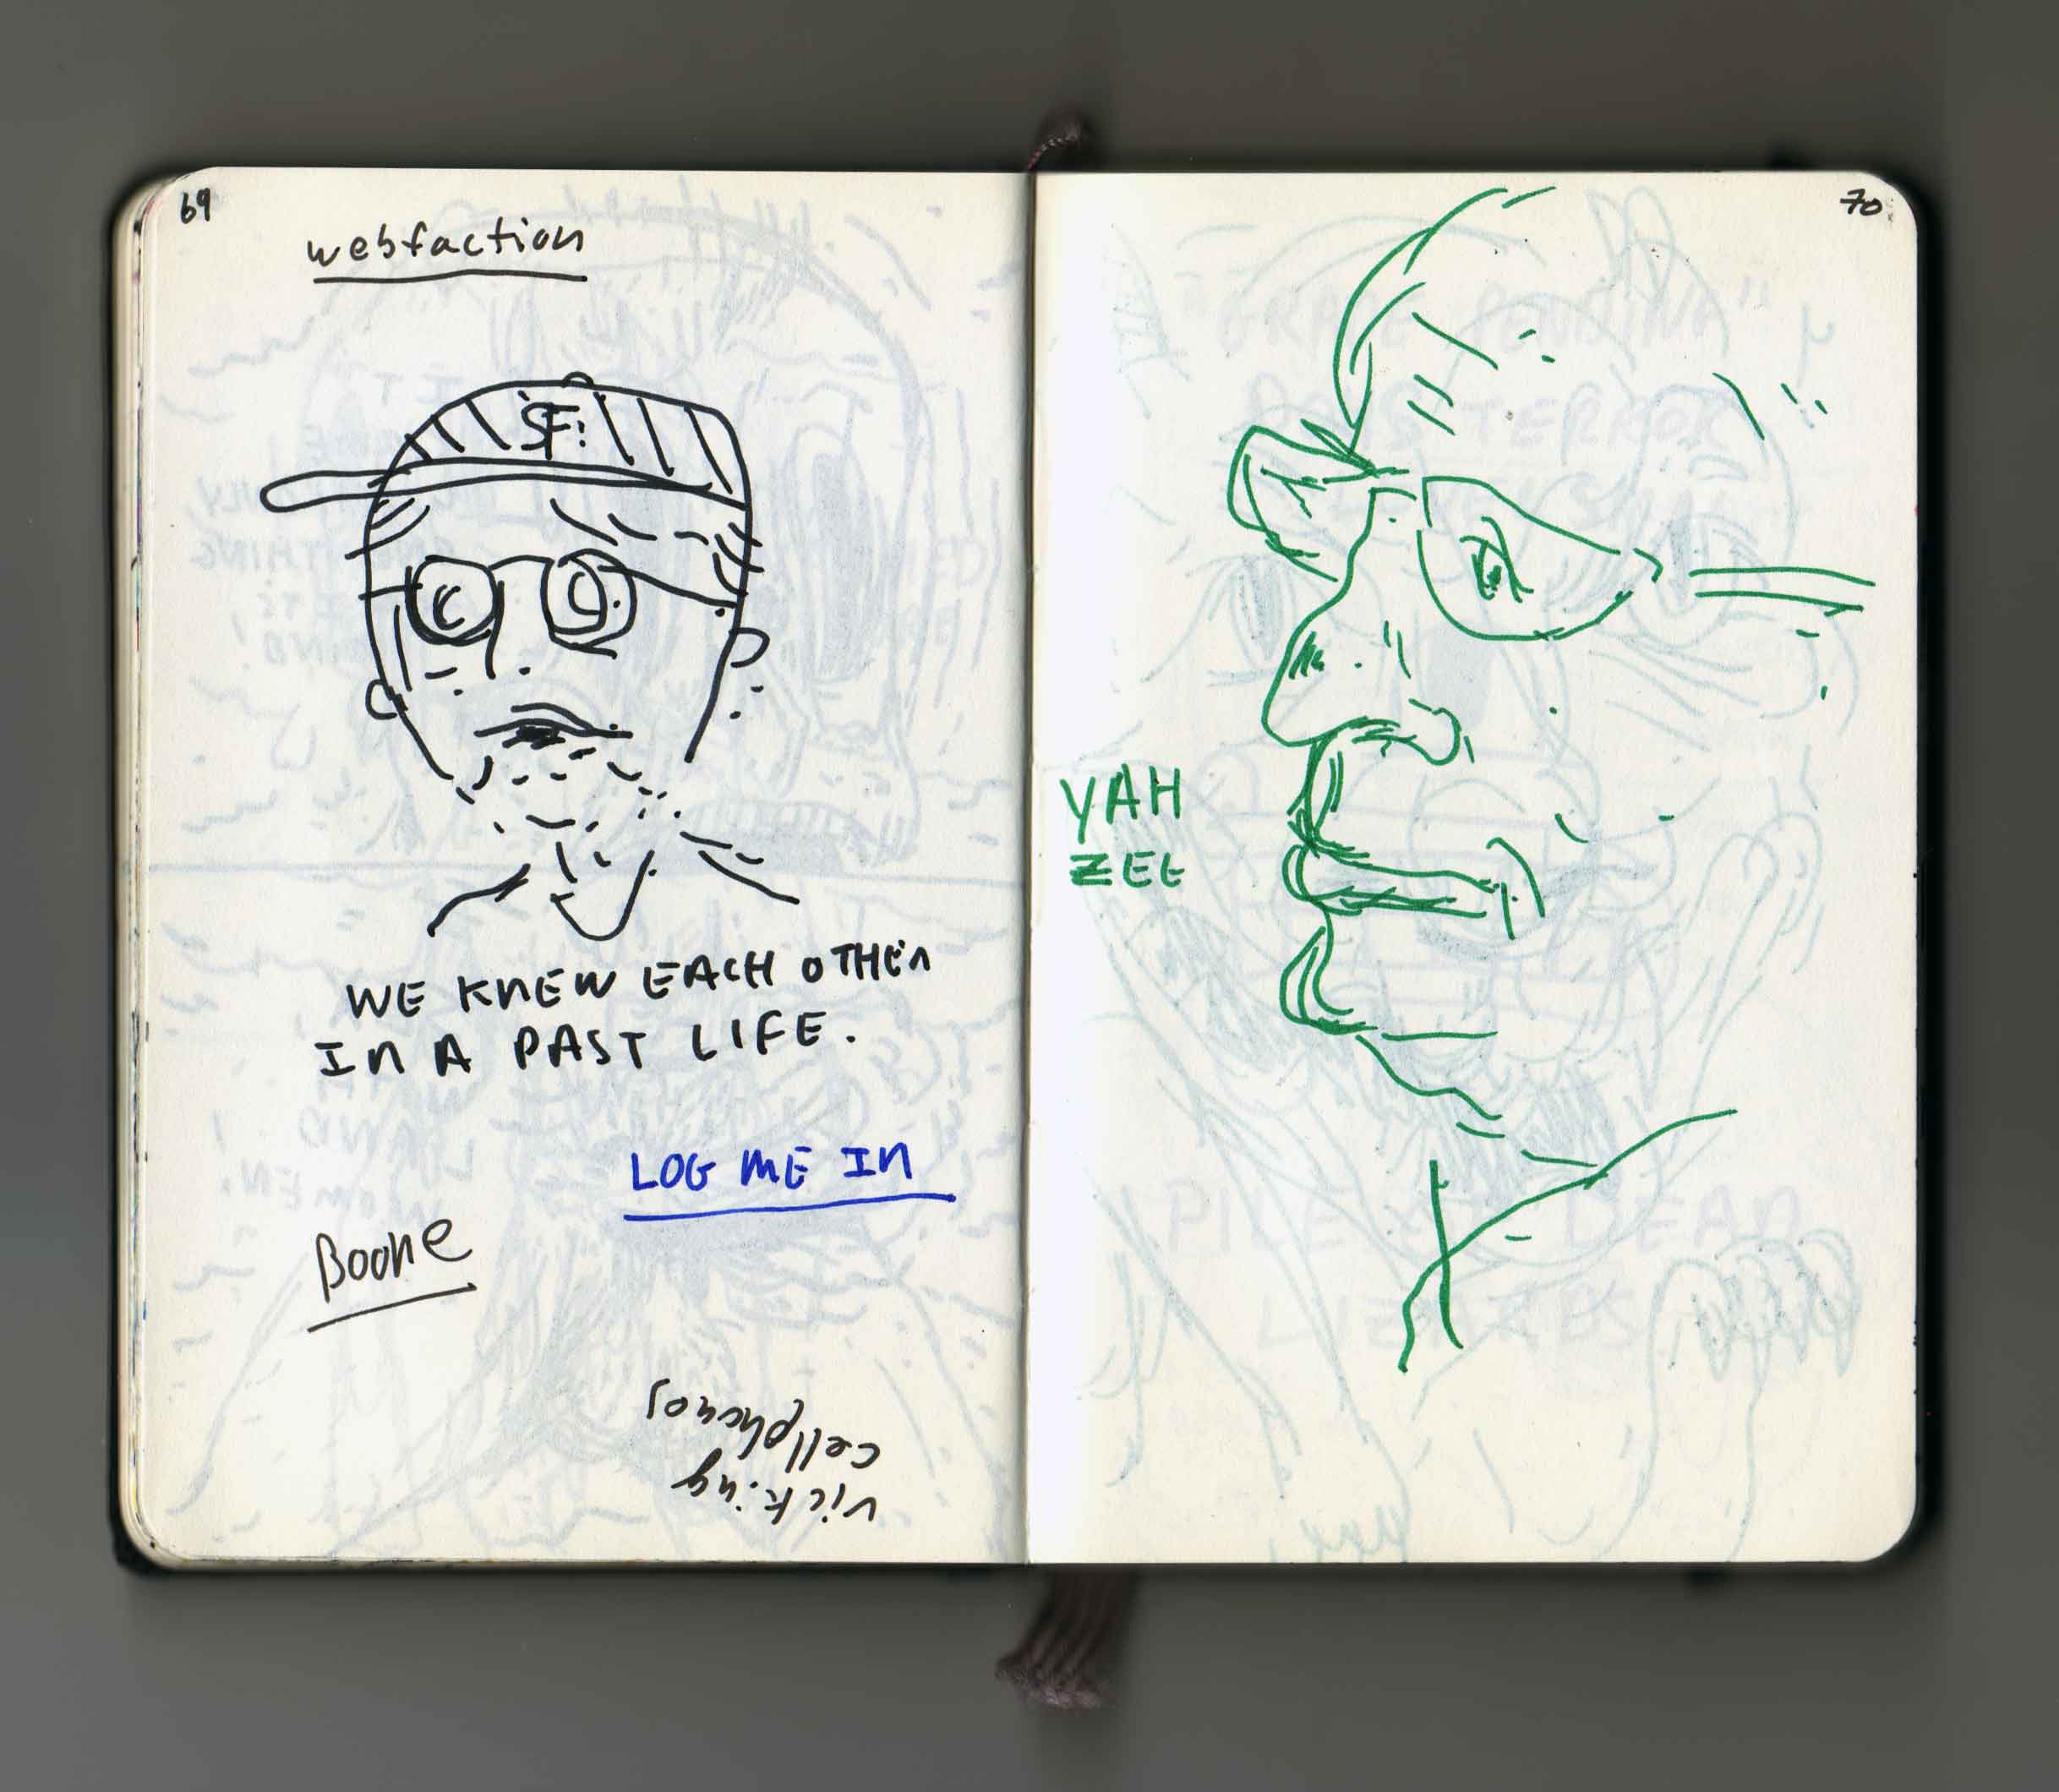 69
webfaction
SF
WE KNEW EACH OTHER
IN A PAST LIFE.
LOG ME IN
Boone
vicking
cellphones
70
YAH
ZEE